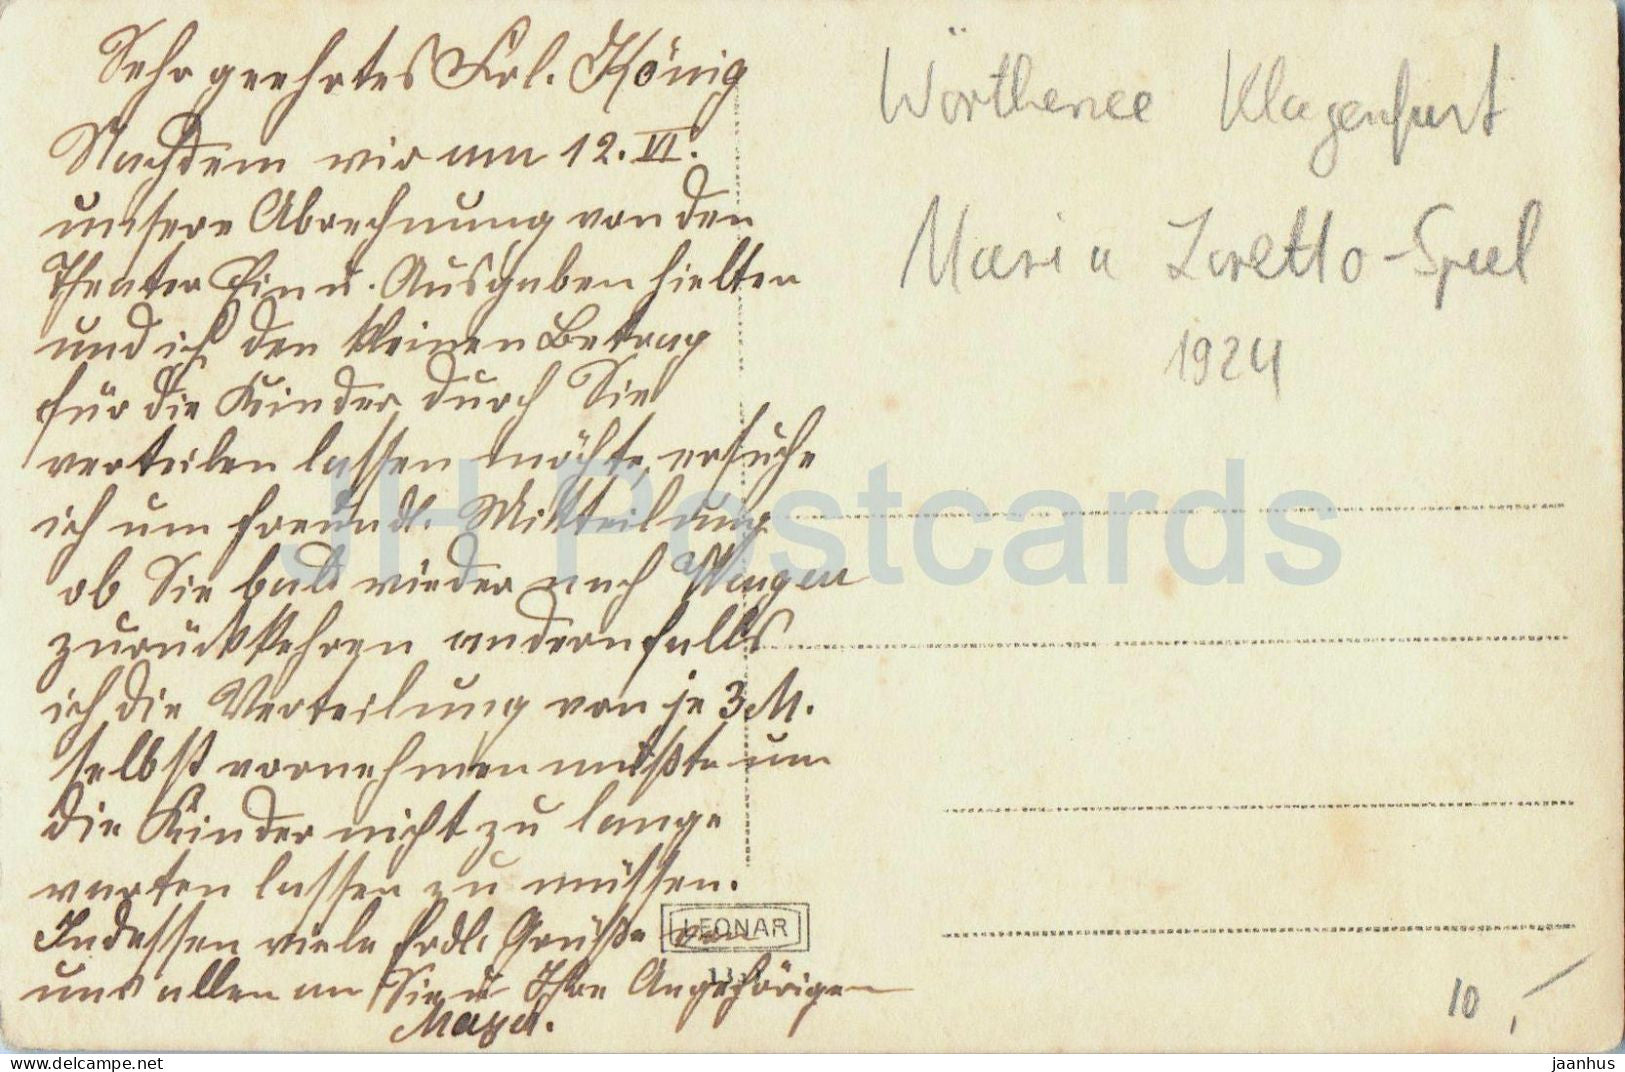 Sehr geehrtes Frl. König
Nachdem wir am 12. VI.
unsere Abrechnung von den
Theater Ein u. Ausgaben hielten
und ich den kleinen Betrag
für die Kinder durch Sie
verteilen lassen möchte, ersuche
ich um freundl. Mitteilung
ob Sie bald wieder nach
zurückkehren andernfalls
ich die Verteilung von je 3 M.
selbst vornehmen müßte um
die Kinder nicht zu lange
warten lassen zu müssen.
Indessen viele frdl. Grüße von
uns allen an Sie u Ihre Angehörigen
Wörthersee Klagenfurt
Maria Loretto-Spiel
1924
LEONAR
10,-
JH Postcards
delcampe.net
jaanhus